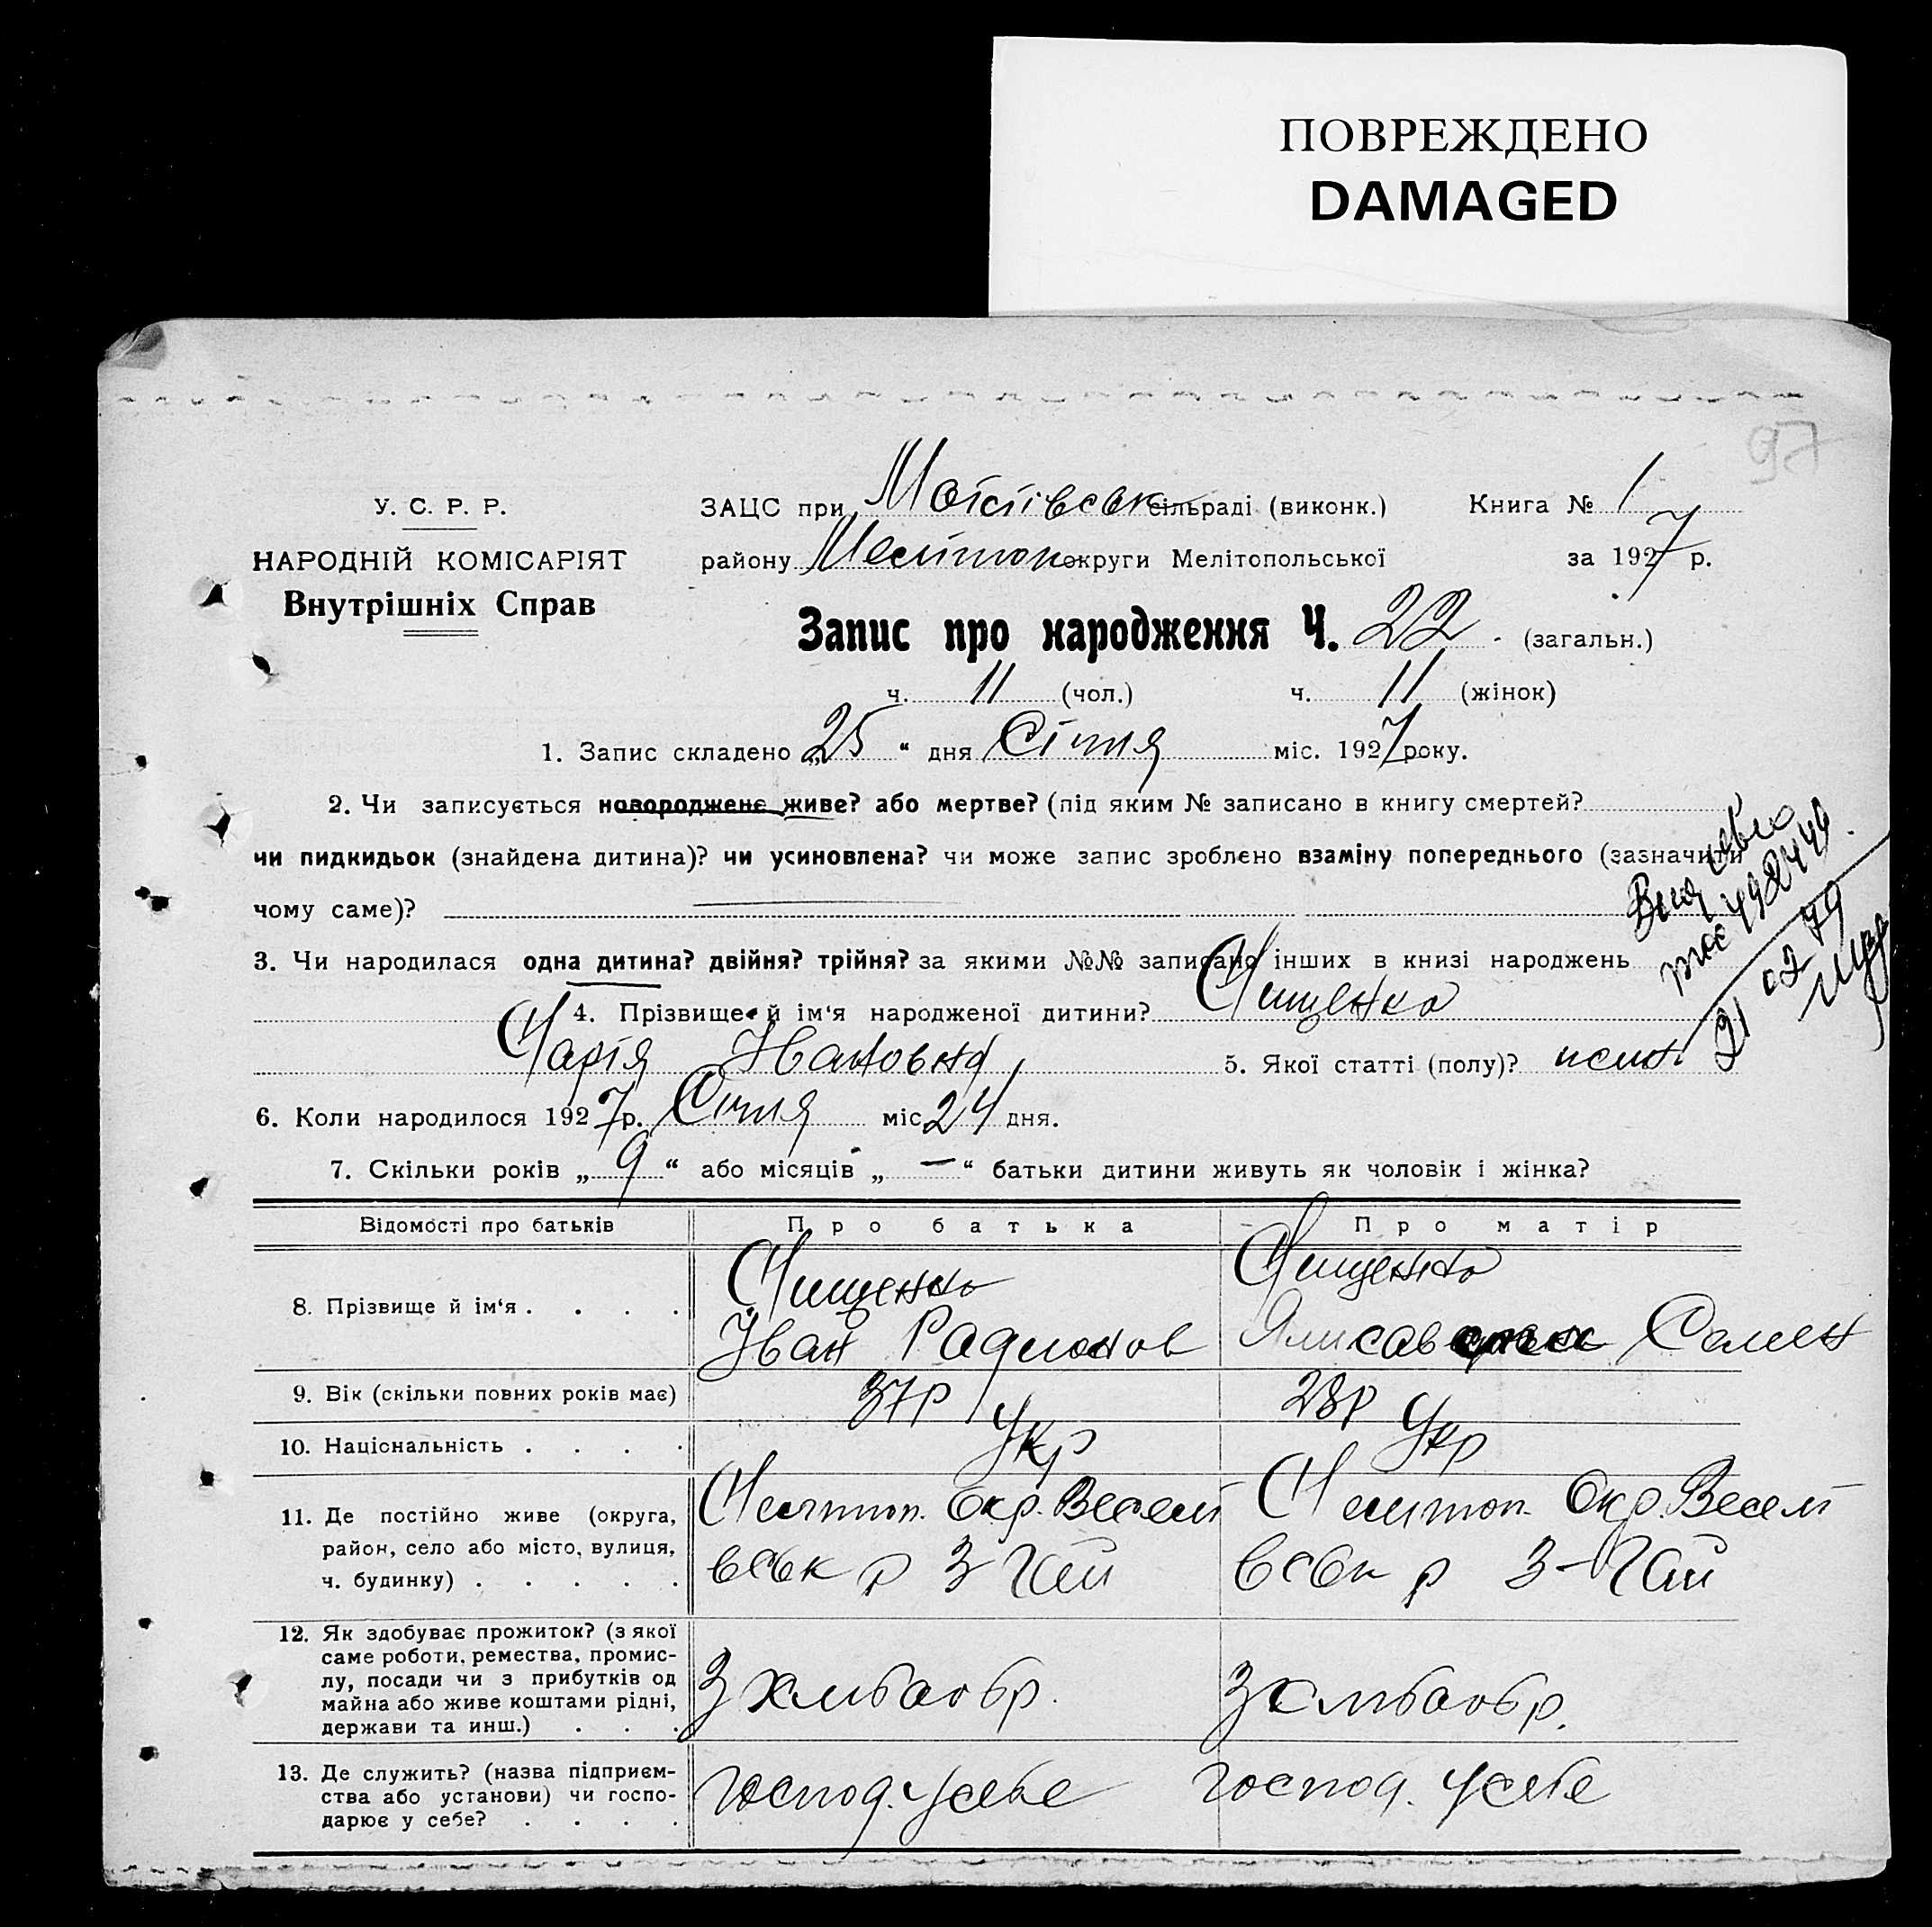 ПОВРЕЖДЕНО
DAMAGED
97
У. С. Р. Р.
НАРОДНІЙ КОМІСАРІЯТ
Внутрішніх Справ
ЗАЦС при Моісіівськ сільраді (виконк.) Книга № 1
району Меліітоп округи Мелітопольської за 1927 р.
Запис про народження Ч. 22. (загальн.)
ч. 11 (чол.) ч. 11 (жінок)
1. Запис складено „25“ дня Січня міс. 1927 року.
2. Чи записується новороджене живе? або мертве? (під яким № записано в книгу смертей?
чи пидкидьок (знайдена дитина)? чи усиновлена? чи може запис зроблєно взаміну попереднього (зазначити
чому саме)?
3. Чи народилася одна дитина? двійня? трійня? за якими №№ записано інших в книзі народжень
4. Прізвище й ім‘я народженої дитини? Мищенко
Марія Ивановна 5. Якої статті (полу)?
6. Коли народилося 1927 р. Січня міс 24 дня.
7. Скільки років „9“ або місяців „—“ батьки дитини живуть як чоловік і жінка?
Відомості про батьків
Про батька
Про матір
8. Прізвище й ім‘я . . . .
Мищенко
Иван Радионов
Мищенко
Ялисавета Семен
9. Вік (скільки повних років має)
37р
28р
10. Національність . . . .
Укр
Укр
11. Де постійно живе (округа,
район, село або місто, вулиця,
ч. будинку) . . . . .
Мелитоп. Окр. Веселі
вськ р З-Гай
Мелитоп. Окр. Веселі
вськ р З-Гай
12. Як здобуває прожиток? (з якої
саме роботи, ремества, промис-
лу, посади чи з прибутків од
майна або живе коштами рідні,
держави та инш.) . . .
З хлібообр.
З хлібообр.
13. Де служить? (назва підприєм-
ства або установи) чи госпо-
дарює у себе? . . . .
Господ. усебе
Господ. усебе
21 02 79